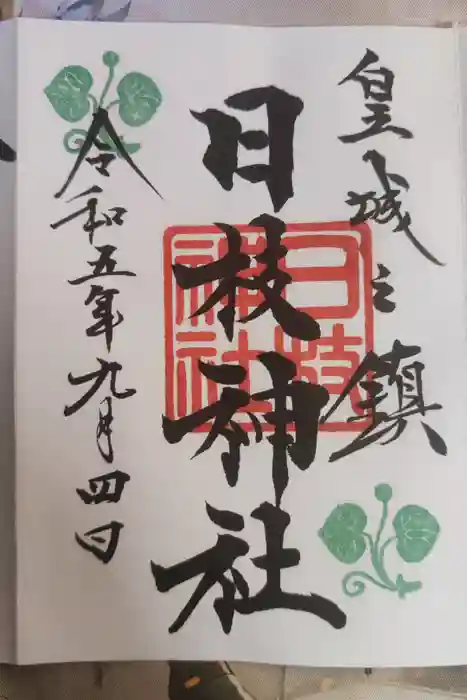 皇城之鎮
日枝神社
日枝神社
令和五年九月四日